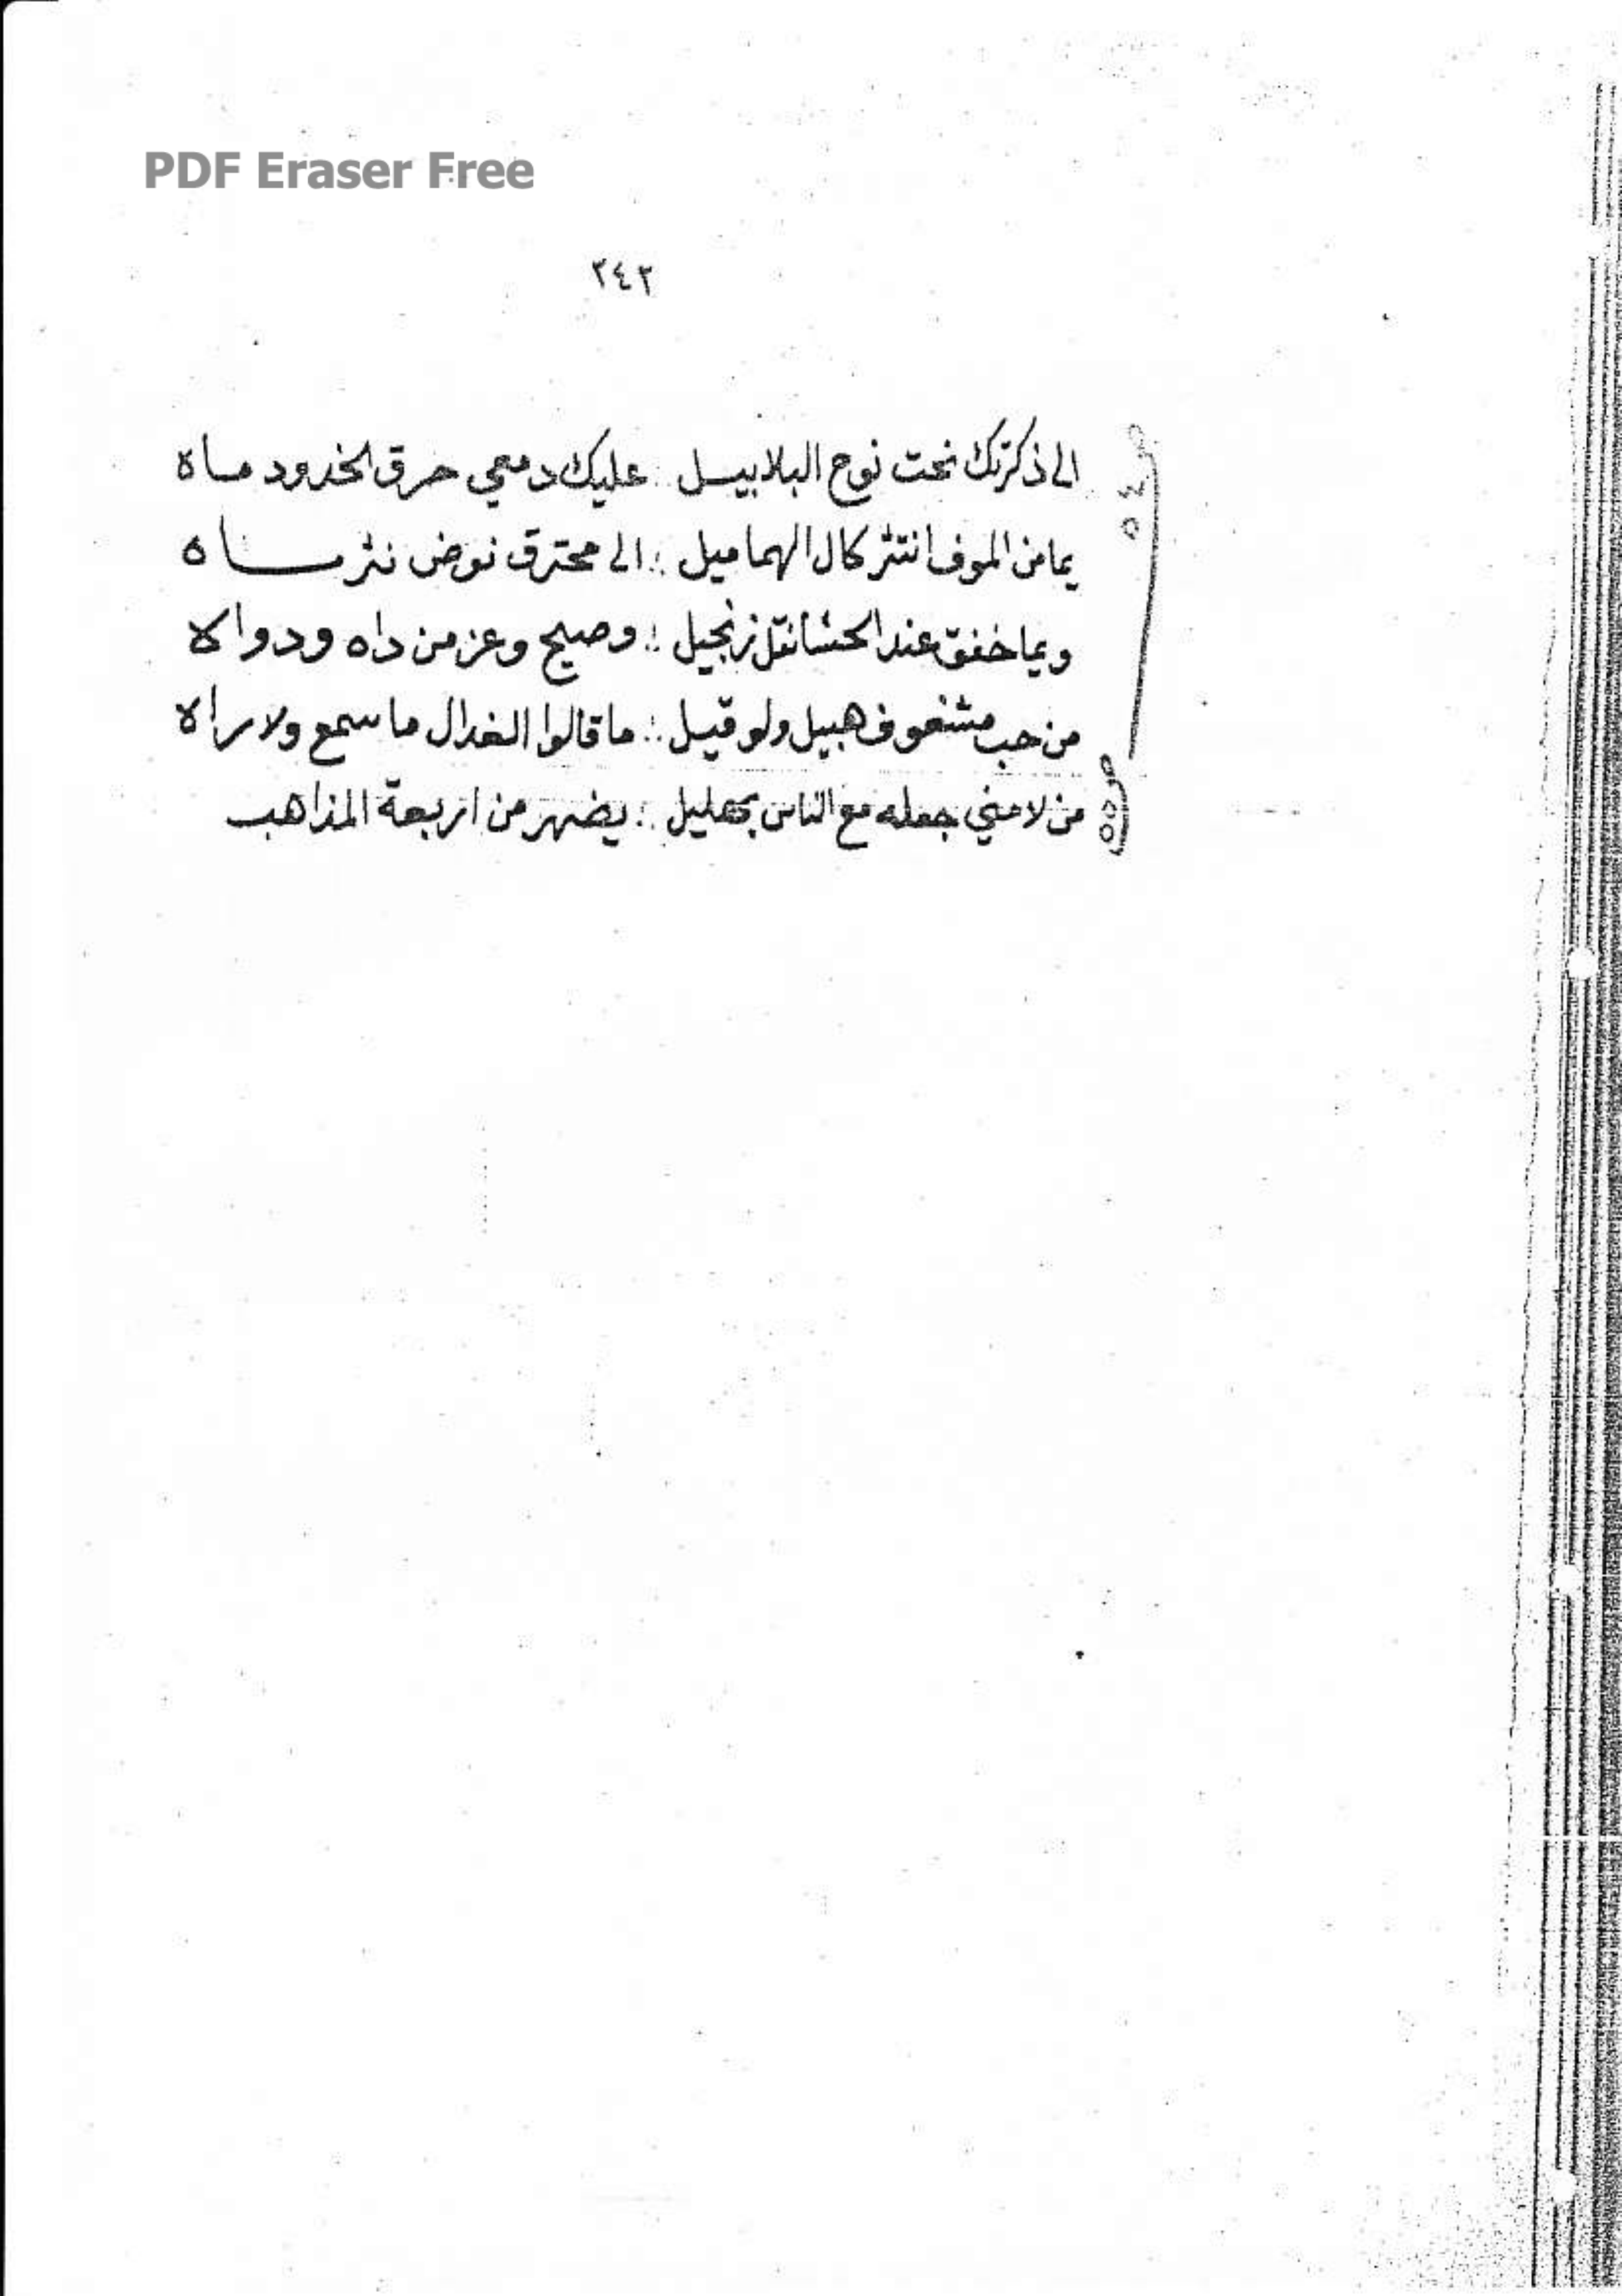 PDF Eraser Free
٢٤٢
الى ذكرتك نحت نوح البلابيل عليك دمعي حرق الخدود ماه
يما من الموف انتثر كال الهماميل الى محترق نوض نثر ماه
ويما خفق عند الحشا نقل زنجبيل وصيح وعز من داه ودواه
من حب مشغوف هبيل ولو قيل ما قالوا الغدال ما سمع ولا راه
من لامني جعله مع الناس بهليل يضهر من اربعة المذاهب
ص ٥٤
ص ٥٥